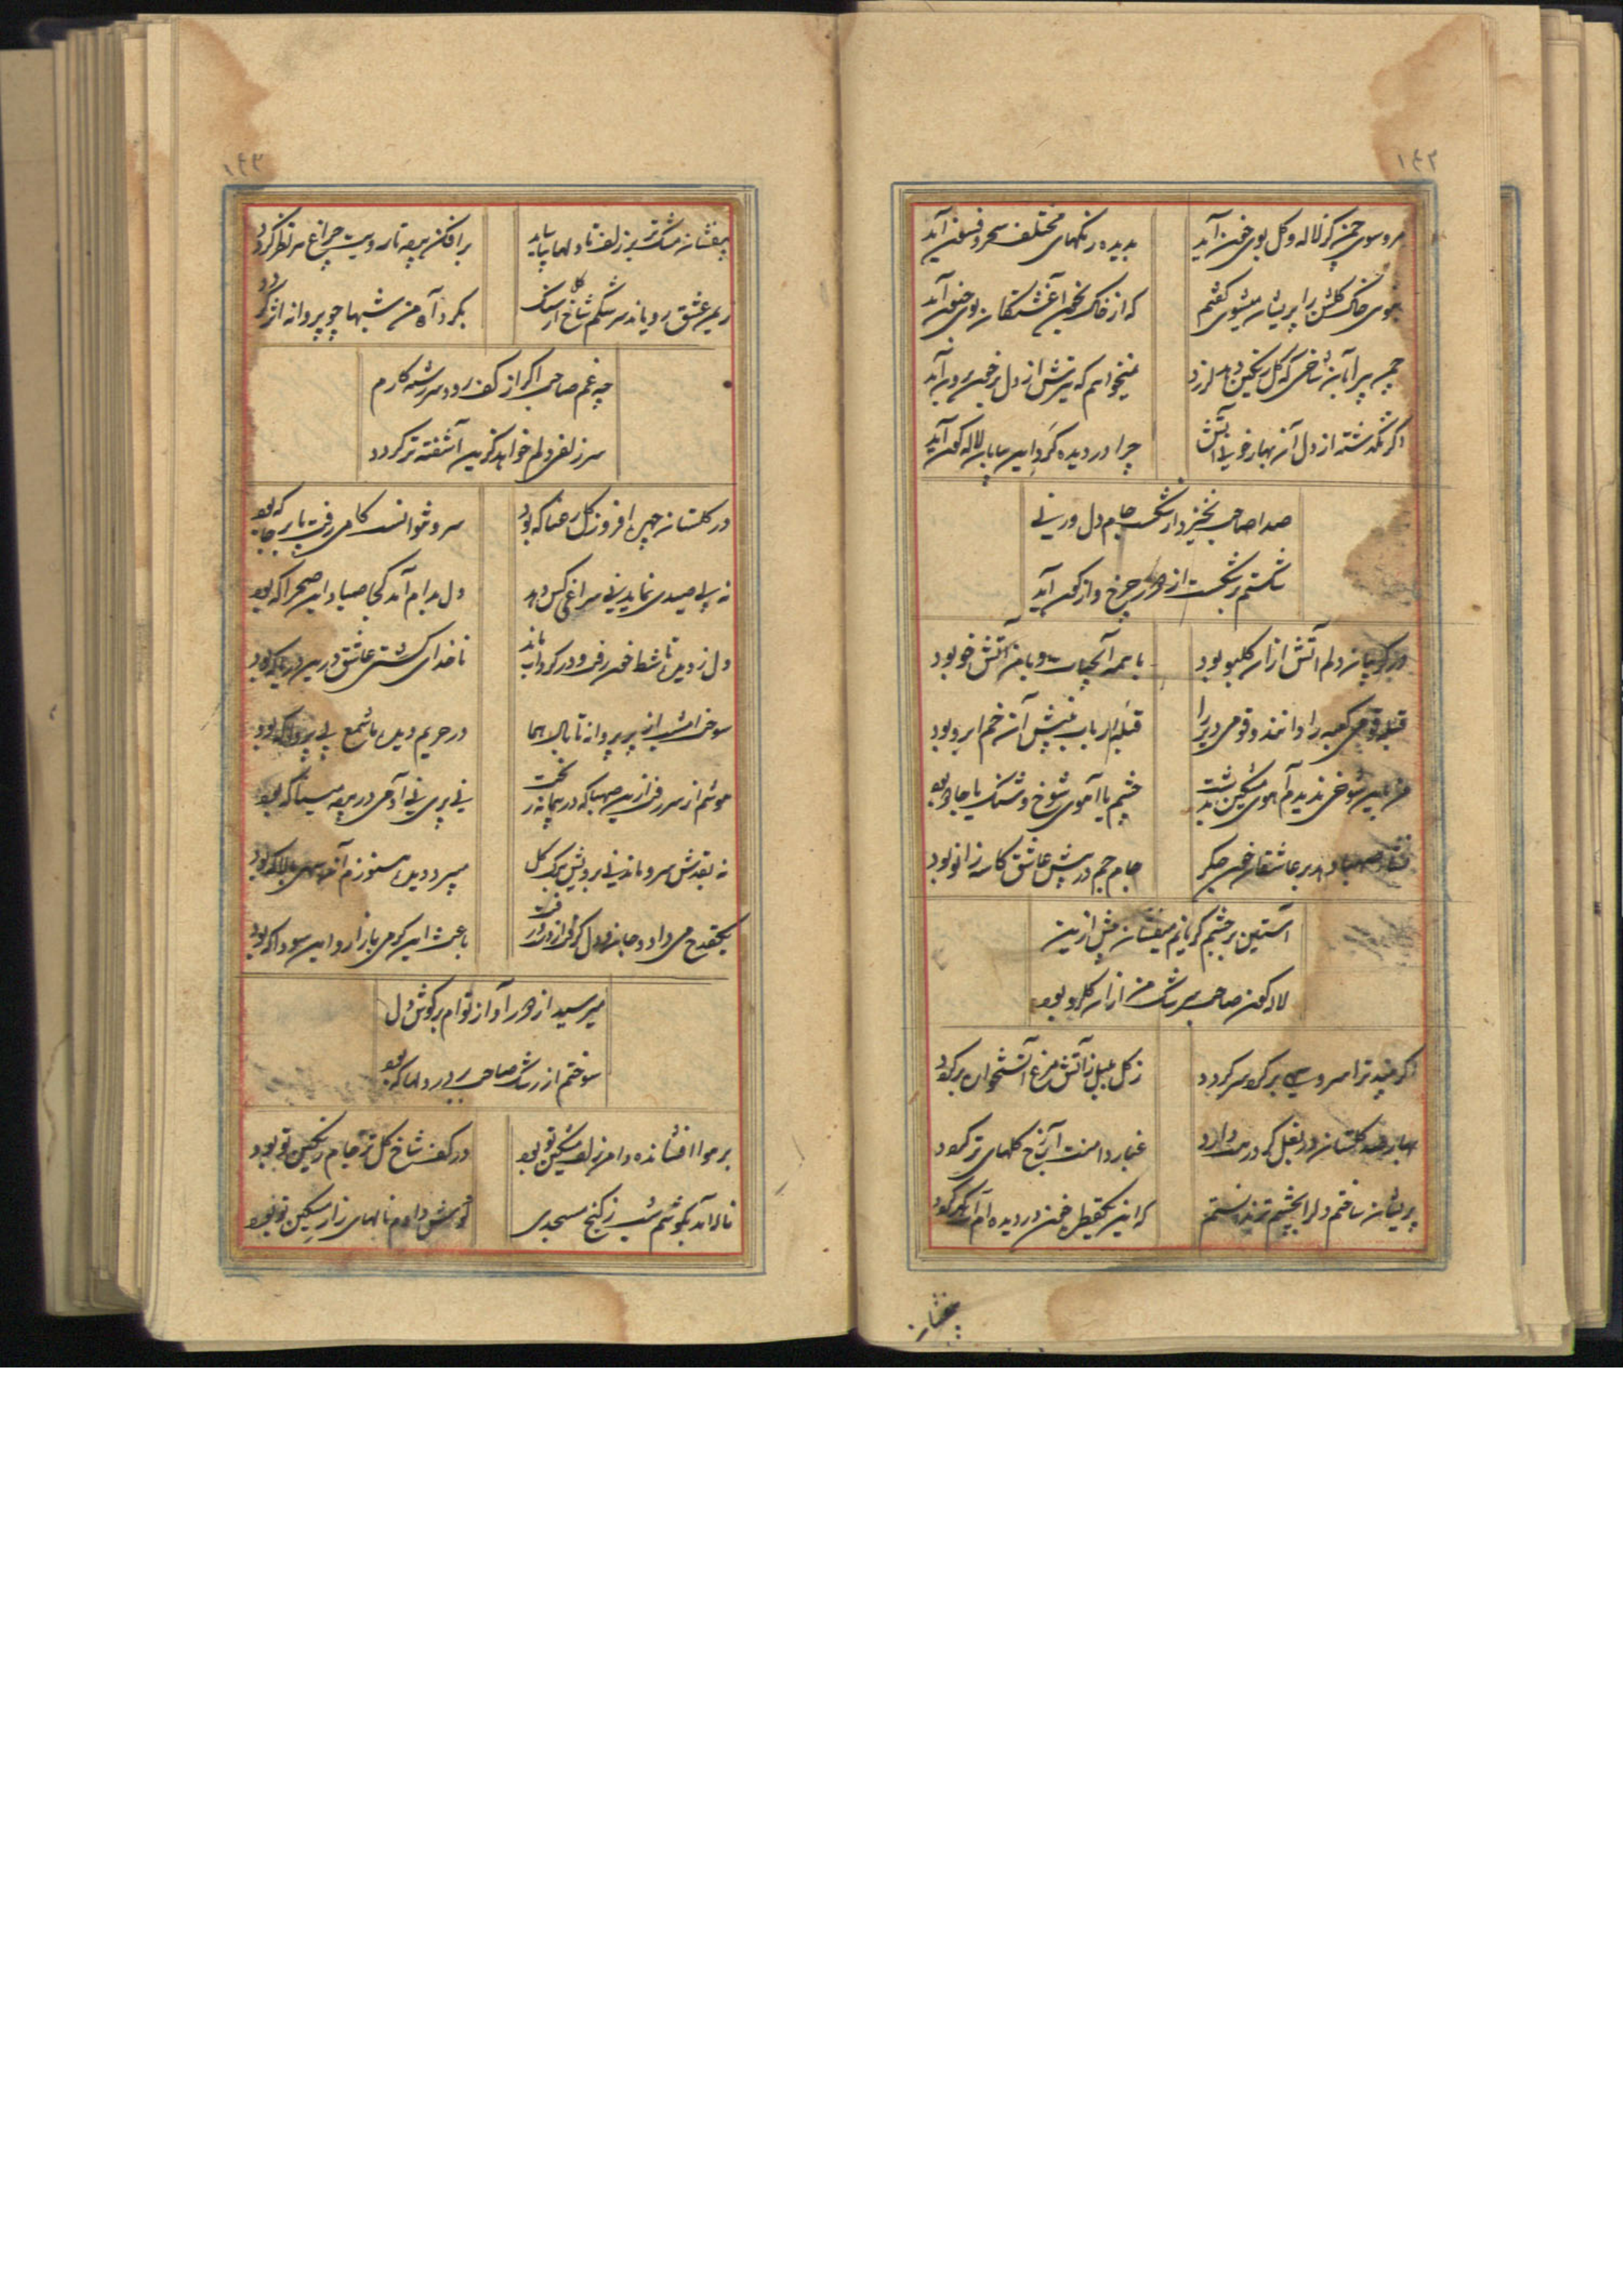 ۱۴۲
مرو سوی چمن کز لاله و گل بوی خون آید
بدیده رنگهای مختلف سحر و فسون آید
بوی خاک گلشن را پریشان میشوی گفتم
که از خاک بخون آغشتگان بوی جنون آید
چمن پیرا بآن شاخی که گل رنگین دهد لرزد
نمیخواهم که تیرش از دل پرخون برون آید
اگر نگذشته از دل آن بهار خویها آتش
چرا در دیده گرد این بیابان لاله گون آید
صدا صاحب نخیزد از شکست جام دل ور نی
شکستم بر شکست از دور چرخ واژگون آید
در گریبان دلم آتش از آن گلبو بود
با همه آبحیات و با من آتش خو بود
قبله قومی کعبه را دانند و قومی دیر را
قبله ارباب بینش آن خم ابرو بود
من باین شوخی ندیدم آهوی مشکین بدشت
چشم یا آهوی شوخ و شنک یا جادو بود
نشاء صهبا دهد بر عاشقان خون جگر
جام جم در پیش عاشق کاسه زانو بود
آستین بر چشم گریانم میفشان بیش ازین
لاله گون صاحب سرشک من از آن گلرو بود
اگر بیند ترا سرو سهی بر گرد سر گردد
ز گل بلبل ز آتش مرغ آتشخوار برگردد
بهار صد گلستان در بغل گر در بردارد
غبار دامنت آب رخ گلهای تر گردد
پریشان ساختم دل را بچشم تر ندانستم
که این یکقطره خون در دیده ام آب گهر گردد
بیفشان
۱۴۳
بیفشان مشک تر بر زلف تا دلها بیاساید
برافکن پرده تا رویت چراغ هر نظر گردد
زمین عشق رویاند سرشکم شاخ گل از سنگ
بگرد آه من شبها چو پروانه اثر گردد
چه غم صاحب اگر از کف رود سررشته کارم
سر زلف دلم خواهد کزین آشفته تر گردد
در گلستان چهره افروز گل رعنا که بود
سرو نتوانست گامی رفت پا بر جا که بود
نه پی صیدی نماید نی سراغی کس دهد
دل برام آمد کجا صیاد این صحرا که بود
دل ز دیده تا شط خون رفت و در گرداب ماند
ناخدای کشتی عاشق درین دریا که بود
سوخت امشب از پر پروانه تا بال هما
در حریم دیده ها شمع بی پروا که بود
هوشم از سر رفت ازین صهبا که در پیمانه ریخت
نی پری نی آدمی در پرده مینا که بود
نه بقدش سرو ماند نی برویش برگ گل
میبرد دیده هنوزم آن سهی بالا که بود
یکقدح می داد و جان و دل گرفت از دست رفت
باعث این گرمی بازار و این سودا که بود
میرسید از هر در آواز توام بر گوش دل
سوختم از رشک صاحب بر در دلها که بود
بر هوا افشانده دامن زلف مشکین تو بود
در کف شاخ گل تر جام رنگین تو بود
ناله آمد بگوشم شب ز کنج مسجدی
گوش دادم نالهای زار مسکین تو بود